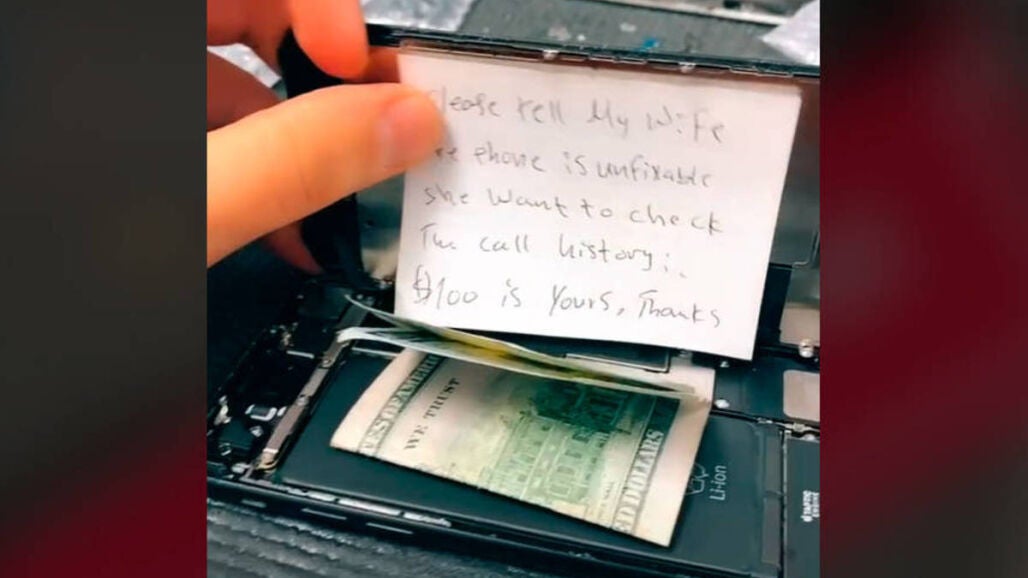 Please tell My Wife
phone is unfixable
she want to check
The call history;.
$100 is Yours, Thanks
WE TRUST
DOLLARS
Li-ion